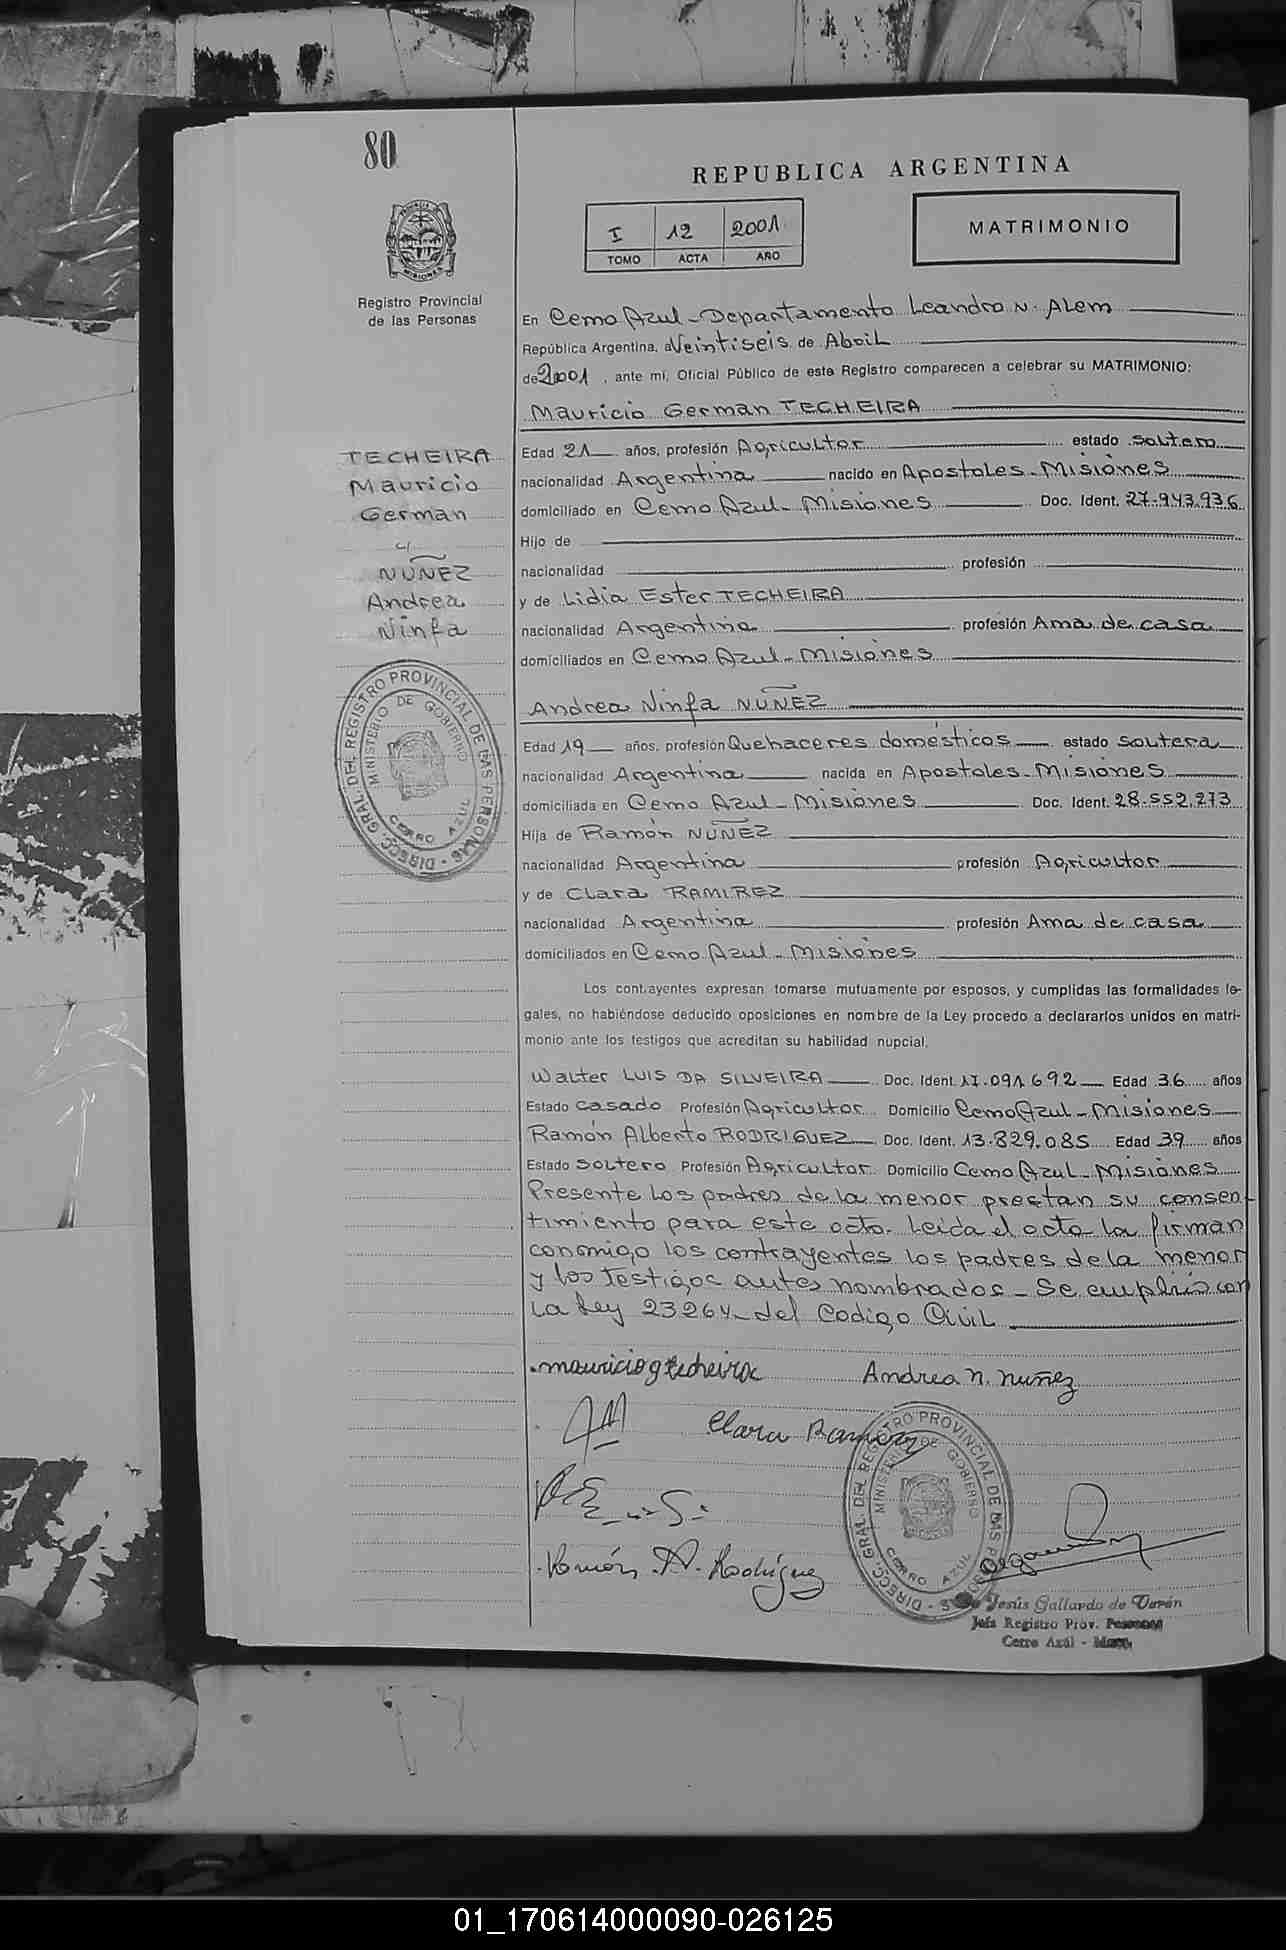 80
REPUBLICA ARGENTINA
I 12 2001
TOMO ACTA AÑO
MATRIMONIO
PROVINCIA DE MISIONES
Registro Provincial
de las Personas
En Cerro Azul - Departamento Leandro N. Alem
República Argentina, a Veintiseis de Abril
de 2001, ante mí, Oficial Público de este Registro comparecen a celebrar su MATRIMONIO:
Mauricio German TECHEIRA
TECHEIRA
Mauricio
German
y
NUÑEZ
Andrea
Ninfa
Edad 21 años, profesión Agricultor estado soltero
nacionalidad Argentina nacido en Apostoles - Misiones
domiciliado en Cerro Azul - Misiones Doc. Ident. 27.943.936
Hijo de
nacionalidad profesión
y de Lidia Ester TECHEIRA
nacionalidad Argentina profesión Ama de casa
domiciliados en Cerro Azul - Misiones
Andrea Ninfa NUÑEZ
Edad 19 años, profesión Quehaceres domésticos estado soltera
nacionalidad Argentina nacida en Apostoles - Misiones
domiciliada en Cerro Azul - Misiones Doc. Ident. 28.552.273
Hija de Ramón NUÑEZ
nacionalidad Argentina profesión Agricultor
y de Clara RAMIREZ
nacionalidad Argentina profesión Ama de casa
domiciliados en Cerro Azul - Misiones
DIRECC. GRAL. DEL REGISTRO PROVINCIAL DE LAS PERSONAS
MINISTERIO DE GOBIERNO
CERRO AZUL
Los contrayentes expresan tomarse mutuamente por esposos, y cumplidas las formalidades le-
gales, no habiéndose deducido oposiciones en nombre de la Ley procedo a declararlos unidos en matri-
monio ante los testigos que acreditan su habilidad nupcial.
Walter LUIS DA SILVEIRA Doc. Ident. 17.091.692 Edad 36 años
Estado casado Profesión Agricultor Domicilio Cerro Azul - Misiones
Ramón Alberto RODRIGUEZ Doc. Ident. 13.829.085 Edad 39 años
Estado soltero Profesión Agricultor Domicilio Cerro Azul - Misiones
Presente los padres de la menor prestan su consen-
timiento para este acto. Leida el acta la firman
conmigo los contrayentes los padres de la menor
y los testigos antes nombrados - Se cumplió con
la Ley 23264 del Codigo Civil
mauricio g techeira Andrea N. Nuñez
Clara Ramirez
Ramón A. Rodriguez
DIRECC. GRAL. DEL REGISTRO PROVINCIAL DE LAS PERSONAS
MINISTERIO DE GOBIERNO
CERRO AZUL
Jesús Gallardo de Verón
Jefa Registro Prov. Personas
Cerro Azul - Mnes.
01_170614000090-026125